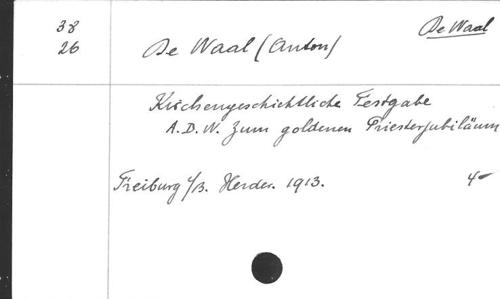 38
26
De Waal (Anton)
De Waal
Kirchengeschichtliche Festgabe
A.D.W. zum goldenen Priesterjubiläum
Freiburg i/B. Herder. 1913.
4-